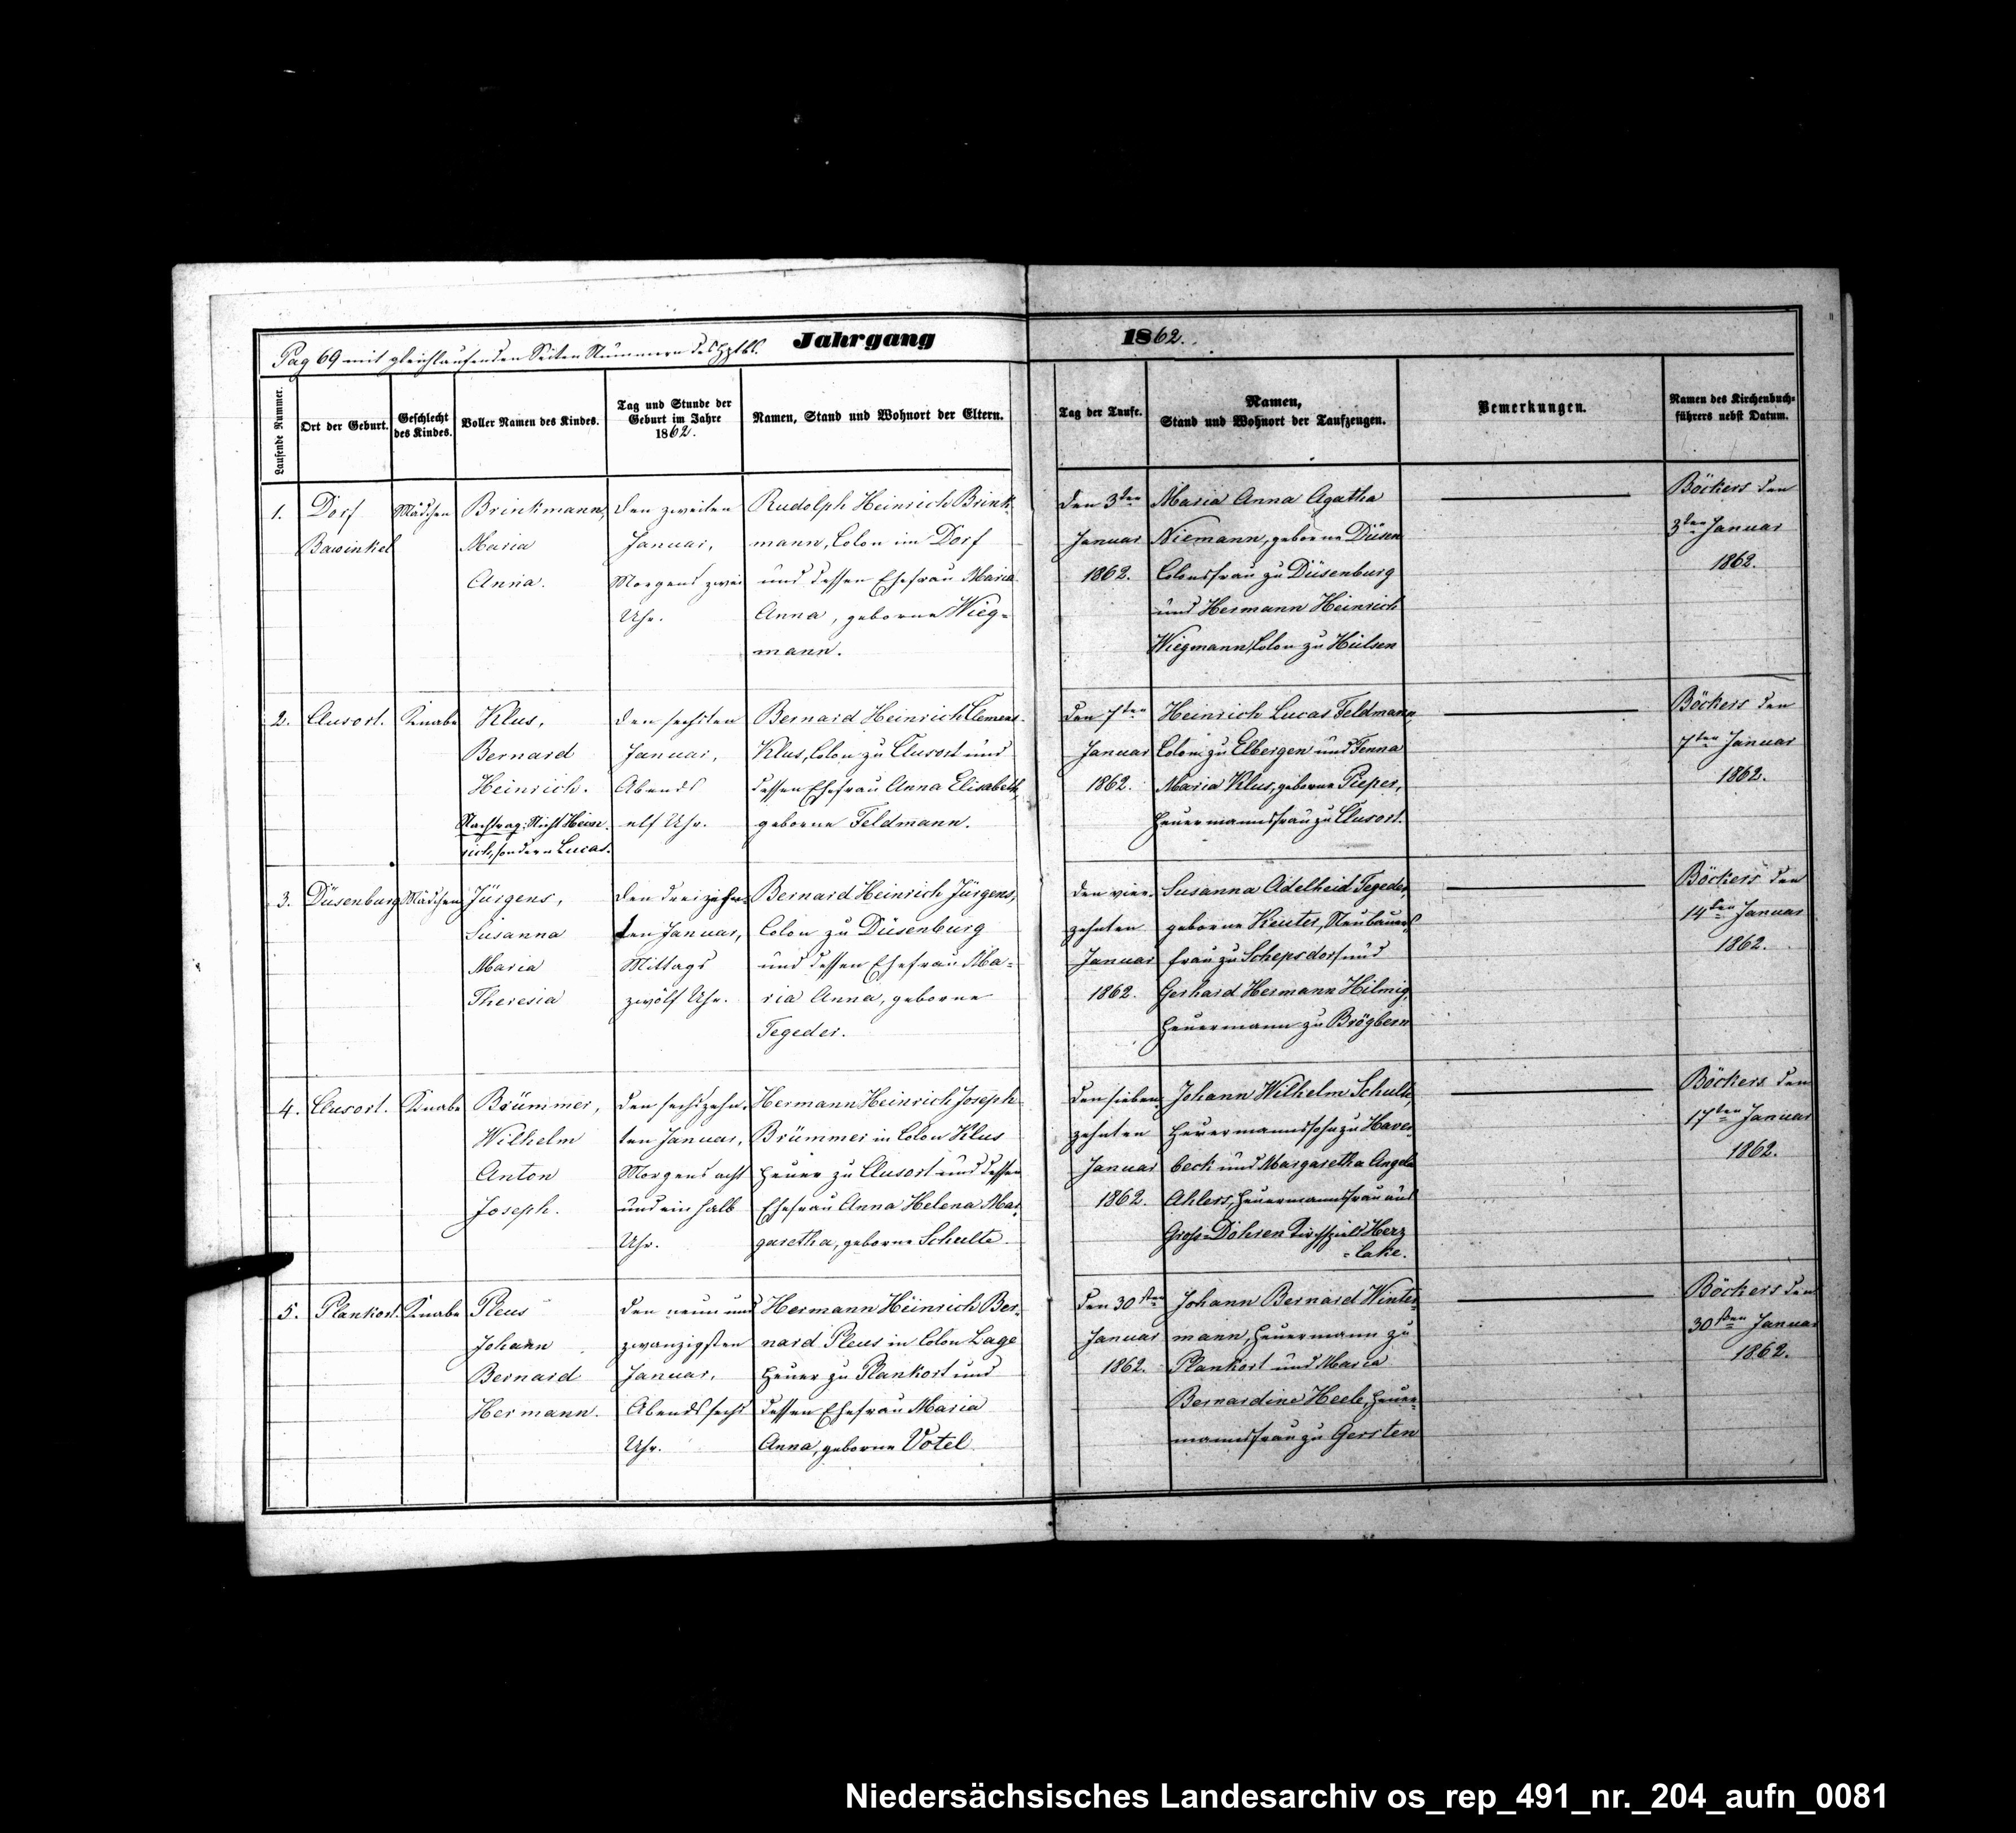 Pag 69 mit gleichlaufenden Seiten Nummern des Hptbs.
Jahrgang 1862.
Laufende Nummer.
Ort der Geburt.
Geschlecht
des Kindes.
Voller Namen des Kindes.
Tag und Stunde der
Geburt im Jahre
1862.
Namen, Stand und Wohnort der Eltern.
Tag der Taufe.
Namen,
Stand und Wohnort der Taufzeugen.
Bemerkungen.
Namen des Kirchenbuch-
führers nebst Datum.
1.
Dorf
Bawinkel
Mädchen
Brinkmann,
Maria
Anna.
den zweiten
Januar,
Morgens zwei
Uhr.
Rudolph Heinrich Brink-
mann, Colon im Dorf
und dessen Ehefrau Maria
Anna, geborne Wieg=
mann.
den 3ten
Januar
1862.
Maria Anna Agatha
Niemann, geborne Düsen
Colonsfrau zu Düsenburg
und Hermann Heinrich
Wiegmann, Colon zu Hülsen
Böckers den
3ten Januar
1862.
2.
Clusort.
Knabe
Klus,
Bernard
Heinrich.
Nachtrag: Nicht Hein-
rich, sondern Lucas.
den sechsten
Januar,
Abends
elf Uhr.
Bernard Heinrich Clemens
Klus, Colon zu Clusort und
dessen Ehefrau Anna Elisabeth,
geborne Feldmann.
den 7ten
Januar
1862.
Heinrich Lucas Feldmann,
Colon zu Elbergen und Fenna
Maria Klus, geborne Pieper,
Heuermannsfrau zu Clusort.
Böckers den
7ten Januar
1862.
3.
Düsenburg
Mädchen
Jürgens,
Susanna
Maria
Theresia
den dreizehn-
ten Januar,
Mittags
zwölf Uhr.
Bernard Heinrich Jürgens,
Colon zu Düsenburg
und dessen Ehefrau Ma=
ria Anna, geborne
Tegeder.
den vier-
zehnten
Januar
1862.
Susanna Adelheid Tegeder,
geborne Keuter, Neubauers
frau zu Schepsdorf und
Gerhard Hermann Hilmig,
Heuermann zu Brögbern
Böckers den
14ten Januar
1862.
4.
Clusort.
Knabe
Brümmer,
Wilhelm
Anton
Joseph.
den sechszehn-
ten Januar,
Morgens acht
und ein halb
Uhr.
Hermann Heinrich Joseph
Brümmer in Colon Klus
Heuer zu Clusort und dessen
Ehefrau Anna Helena Mar-
garetha, geborne Schulte
den sieben-
zehnten
Januar
1862.
Johann Wilhelm Schulte,
Heuermannssohn zu Haver-
beck und Margaretha Angela
Ahlers, Heuermannsfrau aus
Gross=Dohren Kirchspiels Herz
=lake.
Böckers den
17ten Januar
1862.
5.
Plankort.
Knabe
Pleus
Johann
Bernard
Hermann.
den neun und
zwanzigsten
Januar,
Abends sechs
Uhr.
Hermann Heinrich Ber-
nard Pleus in Colon Lage
Heuer zu Plankort und
dessen Ehefrau Maria
Anna, geborne Votel
den 30sten
Januar
1862.
Johann Bernard Winter-
mann, Heuermann zu
Plankort und Maria
Bernardine Heele, Heuer-
mannsfrau zu Gersten
Böckers den
30sten Januar
1862.
Niedersächsisches Landesarchiv os_rep_491_nr._204_aufn_0081